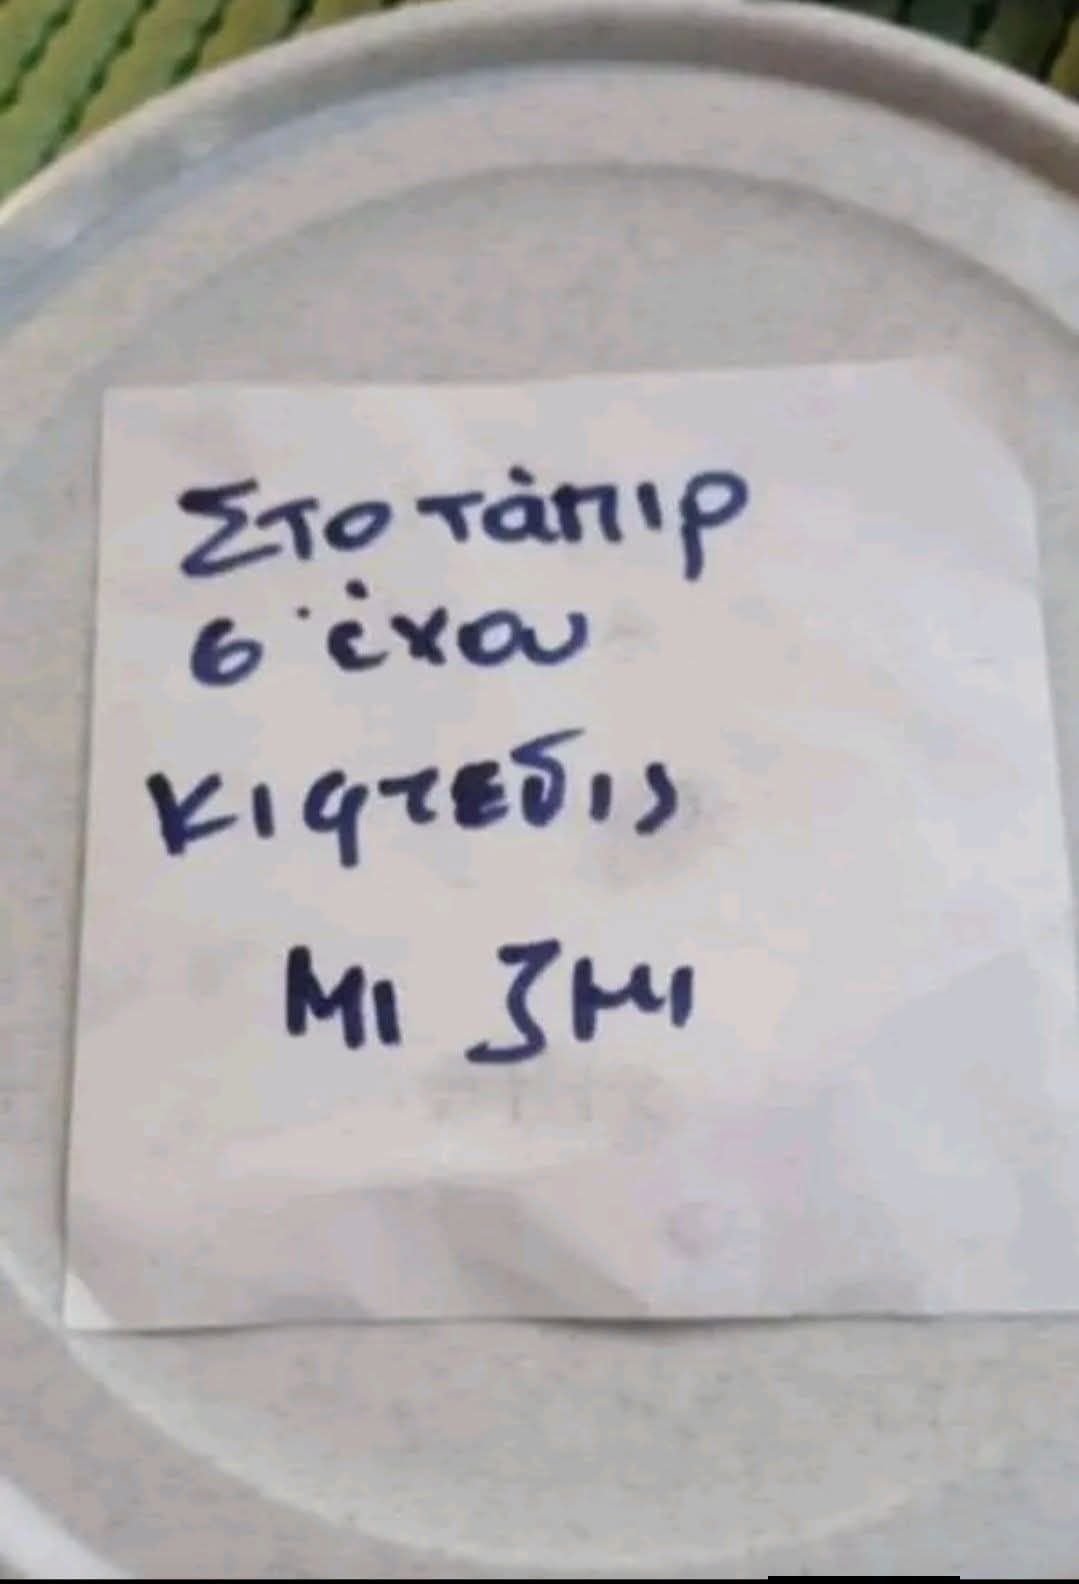 Στο τάπιρ
σ' έχου
κιφτέδις
μι ζμι